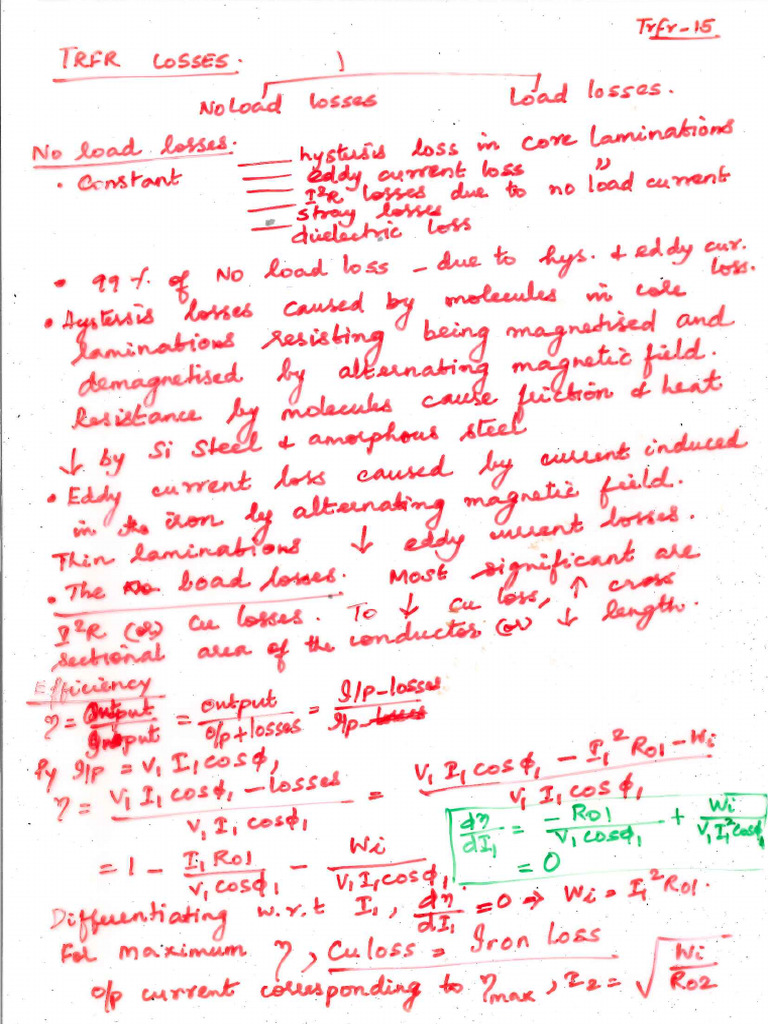 Trfr-15
TRFR LOSSES.
No Load losses    Load losses.
No load losses.
• Constant
— hysterisis loss in core laminations
— eddy current loss "
— I²R losses due to no load current
— stray losses
— dielectric loss
• 99% of No load loss - due to hys. & eddy cur. loss.
• Hysterisis losses caused by molecules in core
laminations resisting being magnetised and
demagnetised by alternating magnetic field.
Resistance by molecules cause friction & heat
↓ by Si Steel & amorphous steel
• Eddy current loss caused by current induced
in the iron by alternating magnetic field.
Thin laminations ↓ eddy current losses.
• The Load losses. Most significant are
I²R (or) Cu losses. To ↓ cu loss, ↑ cross
sectional area of the conductor (or) ↓ length.
Efficiency
η = Output/Input = output/(o/p + losses) = (I/p - losses)/I/p
Py I/p = V₁ I₁ cosφ₁
η = (V₁ I₁ cosφ₁ - losses)/(V₁ I₁ cosφ₁) = (V₁ I₁ cosφ₁ - I₁² R01 - Wi)/(V₁ I₁ cosφ₁)
= 1 - I₁ R01/(V₁ cosφ₁) - Wi/(V₁ I₁ cosφ₁).
dη/dI₁ = -R01/(V₁ cosφ₁) + Wi/(V₁ I₁² cosφ₁)
= 0
Differentiating w.r.t I₁, dη/dI₁ = 0 ⇒ Wi = I₁² R01.
For maximum η, Cu loss = Iron Loss
o/p current corresponding to ηmax, I₂ = √(Wi/R02)